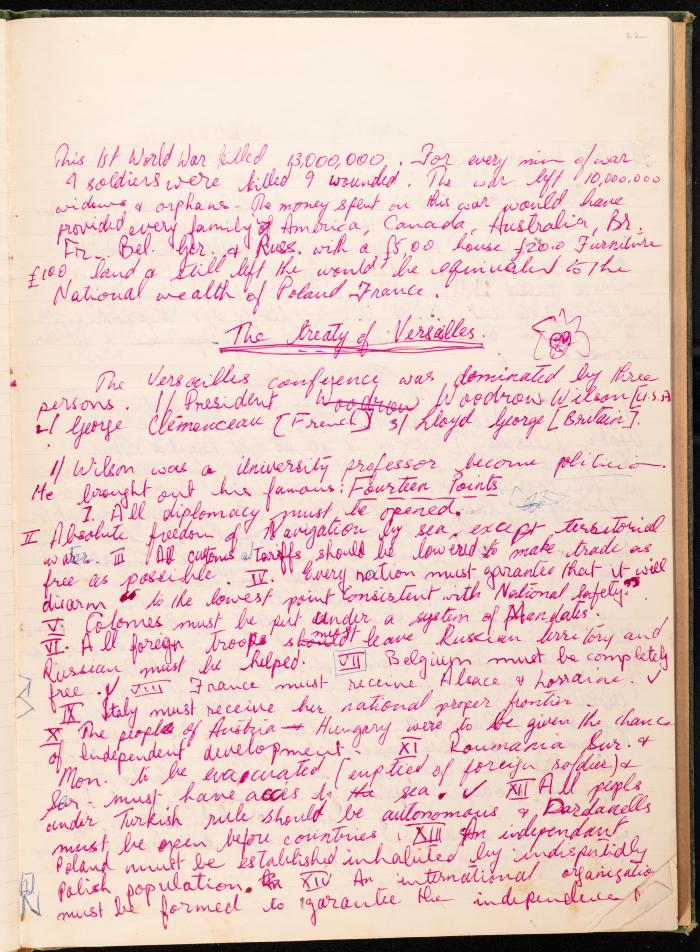 22
This 1st World War killed 13,000,000. For every min of war
4 soldiers were killed 9 wounded. The war left 10,000.000
widows & orphans. The money spent on this war would have
provided every family of America, Canada, Australia, Br.
Fr. Bel. Ger. & Russ. with a £5,00 house £200 Furniture
£100 land & still left the would be equivalent to the
National wealth of Poland France.
The treaty of Versailles.
The Versailles conference was dominated by three
persons. 1/ President Woodrow Woodrow Wilson [U.S.A]
2/ George Clemenceau [French] 3/ Lloyd George [Britain].
1/ Wilson was a University professor become politician.
He brought out his famous: Fourteen Points
I. All diplomacy must be opened.
II Absolute freedom of Navigation by sea except territorial
water. III All customs tariffs should be lowered to make trade as
free as possible. IV. Every nation must garantie that it will
disarm " to the lowest point consistent with National safety."
V. Colonies must be put under a system of Mandates.
VI. All foreign troops should must leave Russian territory and
Russian must be helped. VII Belgium must be completely
free. ✓ VIII France must receive Alsace & Lorraine. ✓
IX Italy must receive her national proper frontier.
X The people of Austria - Hungary were to be given the chance
of independent development. XI Roumania Sur. &
Mon. to be evacuated (emptied of foreign soldier) &
Ser. must have acces to sea. ✓ XII All peopls
under Turkish rule should be autonomous & Dardanells
must be open before countries. XIII An independant
Poland must be established inhabited by indisputidly
Polish population. XIV An international organisatio
must be formed to garantee the independence